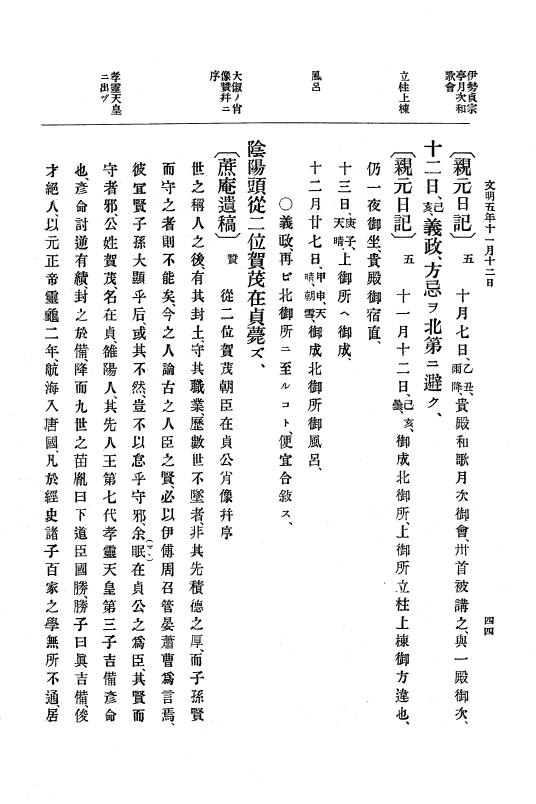 文明五年十一月十二日
四四
伊勢貞宗
亭月次和
歌會
〔親元日記〕 五 十月七日、乙丑、雨降、貴殿和歌月次御會、卅首被講之、與一殿御次、
十二日、己亥、義政、方忌ヲ北第ニ避ク、
立柱上棟
〔親元日記〕 五 十一月十二日、己亥、曇、御成北御所、上御所立柱上棟御方違也、
仍一夜御坐、貴殿御宿直、
十三日、庚子、天晴、上御所ヘ御成、
風呂
十二月廿七日、甲申、天晴、朝雪、御成北御所御風呂、
〇義政、再ビ北御所ニ至ルコト、便宜合敍ス、
陰陽頭從二位賀茂在貞薨ズ、
大俶ノ肖
像贊幷ニ
序
〔蔗庵遺稿〕 贊 從二位賀茂朝臣在貞公肖像幷序
世之稱人之後有其封土、守其職業、歷數世不墜者、非其先積德之厚、而子孫賢
而守之者則不能矣、今之人論古之人臣之賢、必以伊傅周召管晏蕭曹爲言焉、
彼宜賢子孫大顯乎后、或其不然、豈不以怠乎守邪、余眠(マヽ)在貞公之爲臣、其賢而
孝靈天皇
ニ出ヅ
守者邪、公姓賀茂、名在貞、雒陽人、其先人王第七代孝靈天皇第三子吉備彥命
也、彥命討逆有績、封之於備、降而九世之苗胤曰下道臣國勝、勝子曰眞吉備、俊
才絕人、以元正帝靈龜二年、航海入唐國、凡於經史諸子百家之學無所不通、居